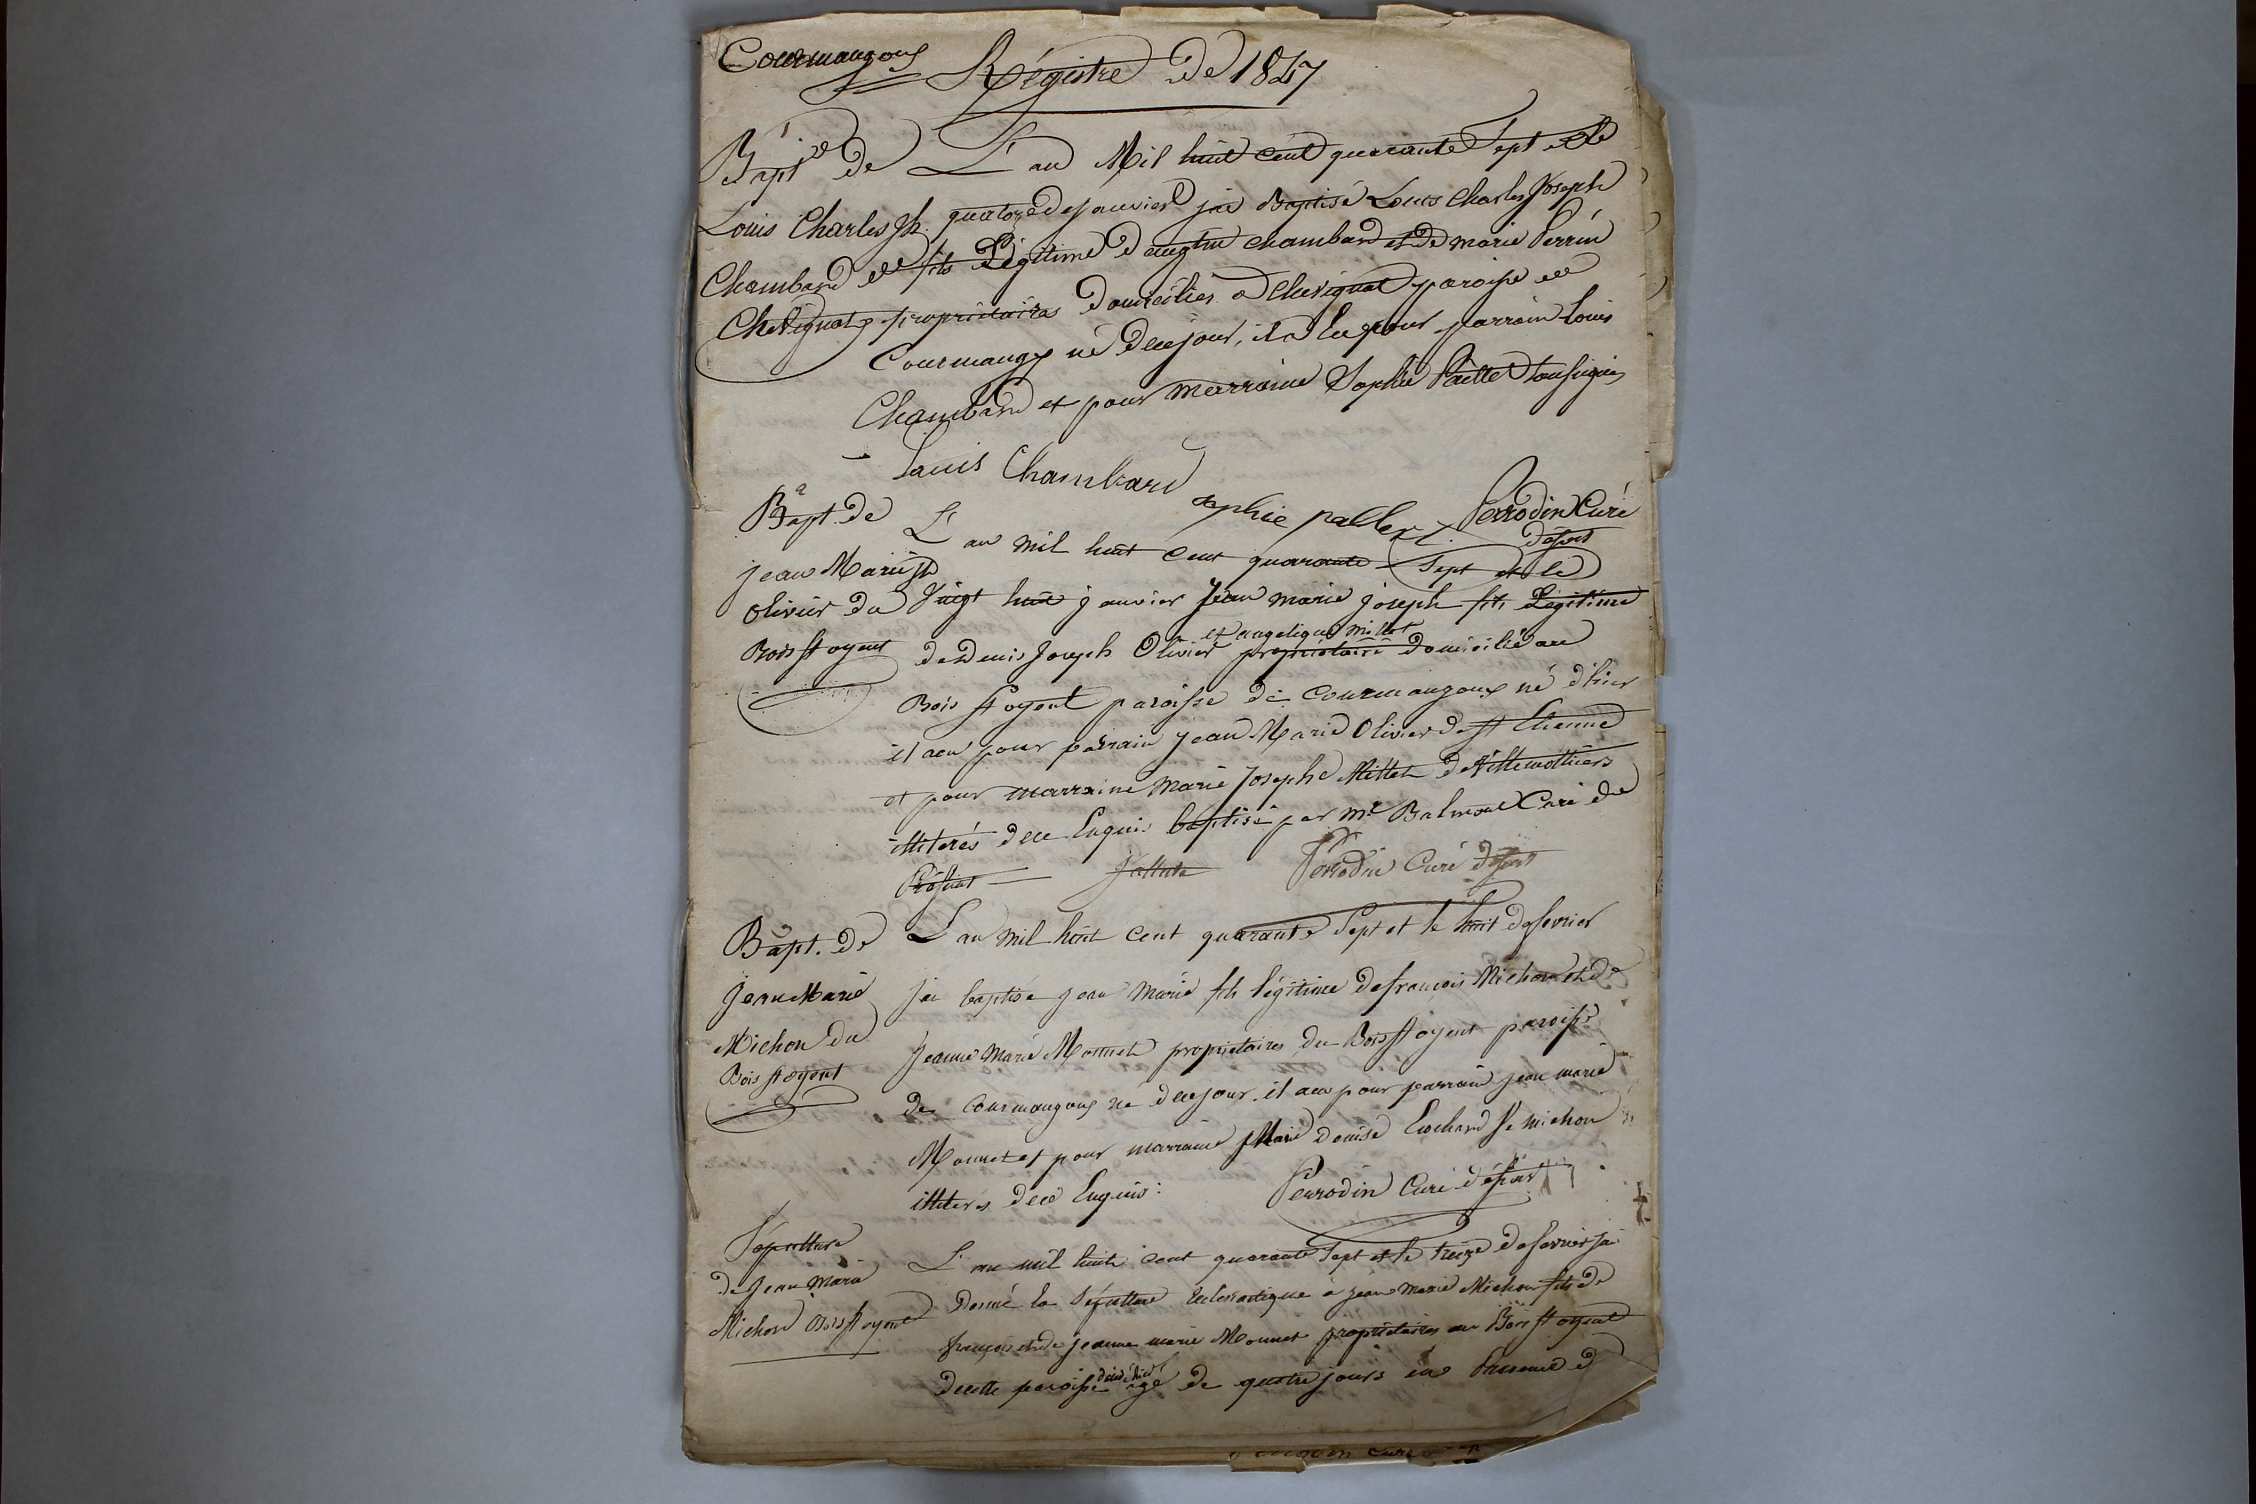 Courmangoux
Régistre de 1847
Bapt. de
Louis Charles Jh.
Chambard de
Chevignat
L'an Mil huit cent quarante Sept et le
quatorze de janvier jai Baptisé Louis Charles Joseph
fils Légitime d'augtin chambard et de marie Perrin
propriétaires domiciliés a Chevignat paroisse de
Courmangx né de ce jour, il a Eu pour parrain Louis
Chambard et pour marraine Sophie Paillet Soussignés
Louis Chambard
sophie pallet
Perrodin Curé
déssert
Bapt. de
jean Marie Jh
Olivier du
Bois St oyent
L'an mil huit cent quarante Sept et le
Vingt huit janvier Jean marie joseph fils Légitime
et angelique millet
de Denis Joseph Olivier propriétaire domicilié au
Bois St oyent paroisse de Courmangoux né d'hier
il a eu pour parrain jean Marie Olivier de St Etienne
et pour marraine marie josephe Millet de Villemotiers
illiterés de ce Enquis baptisé par mr Balmont Curé de
Perrodin Curé déssert
Bapt. de
Jean Marie
Michon du
Bois St oyent
L'an mil huit cent quarante Sept et le huit de fevrier
jai baptisé jean Marie fils légitime de françois Michon et de
jeanne Marie Monnet propriétaires du Bois St oyent paroisse
de Courmangoux né de ce jour. il a eu pour parrain jean marie
Monnet et pour marraine Marie denise Cochard fe michon
illiterés de ce Enquis:
Perrodin Curé déssert
Sépulture
de jean Marie
Michon Bois St oyent
L'an mil huit cent quarante Sept et le treize de fevrier jai
donné la Sépulture Eclesiastique a jean marie Michon fils de
françois et de jeanne marie Monnet propriétaires au Bois St oyent
décédé hier
de cette paroisse agé de quatre jours en Presence de
curé